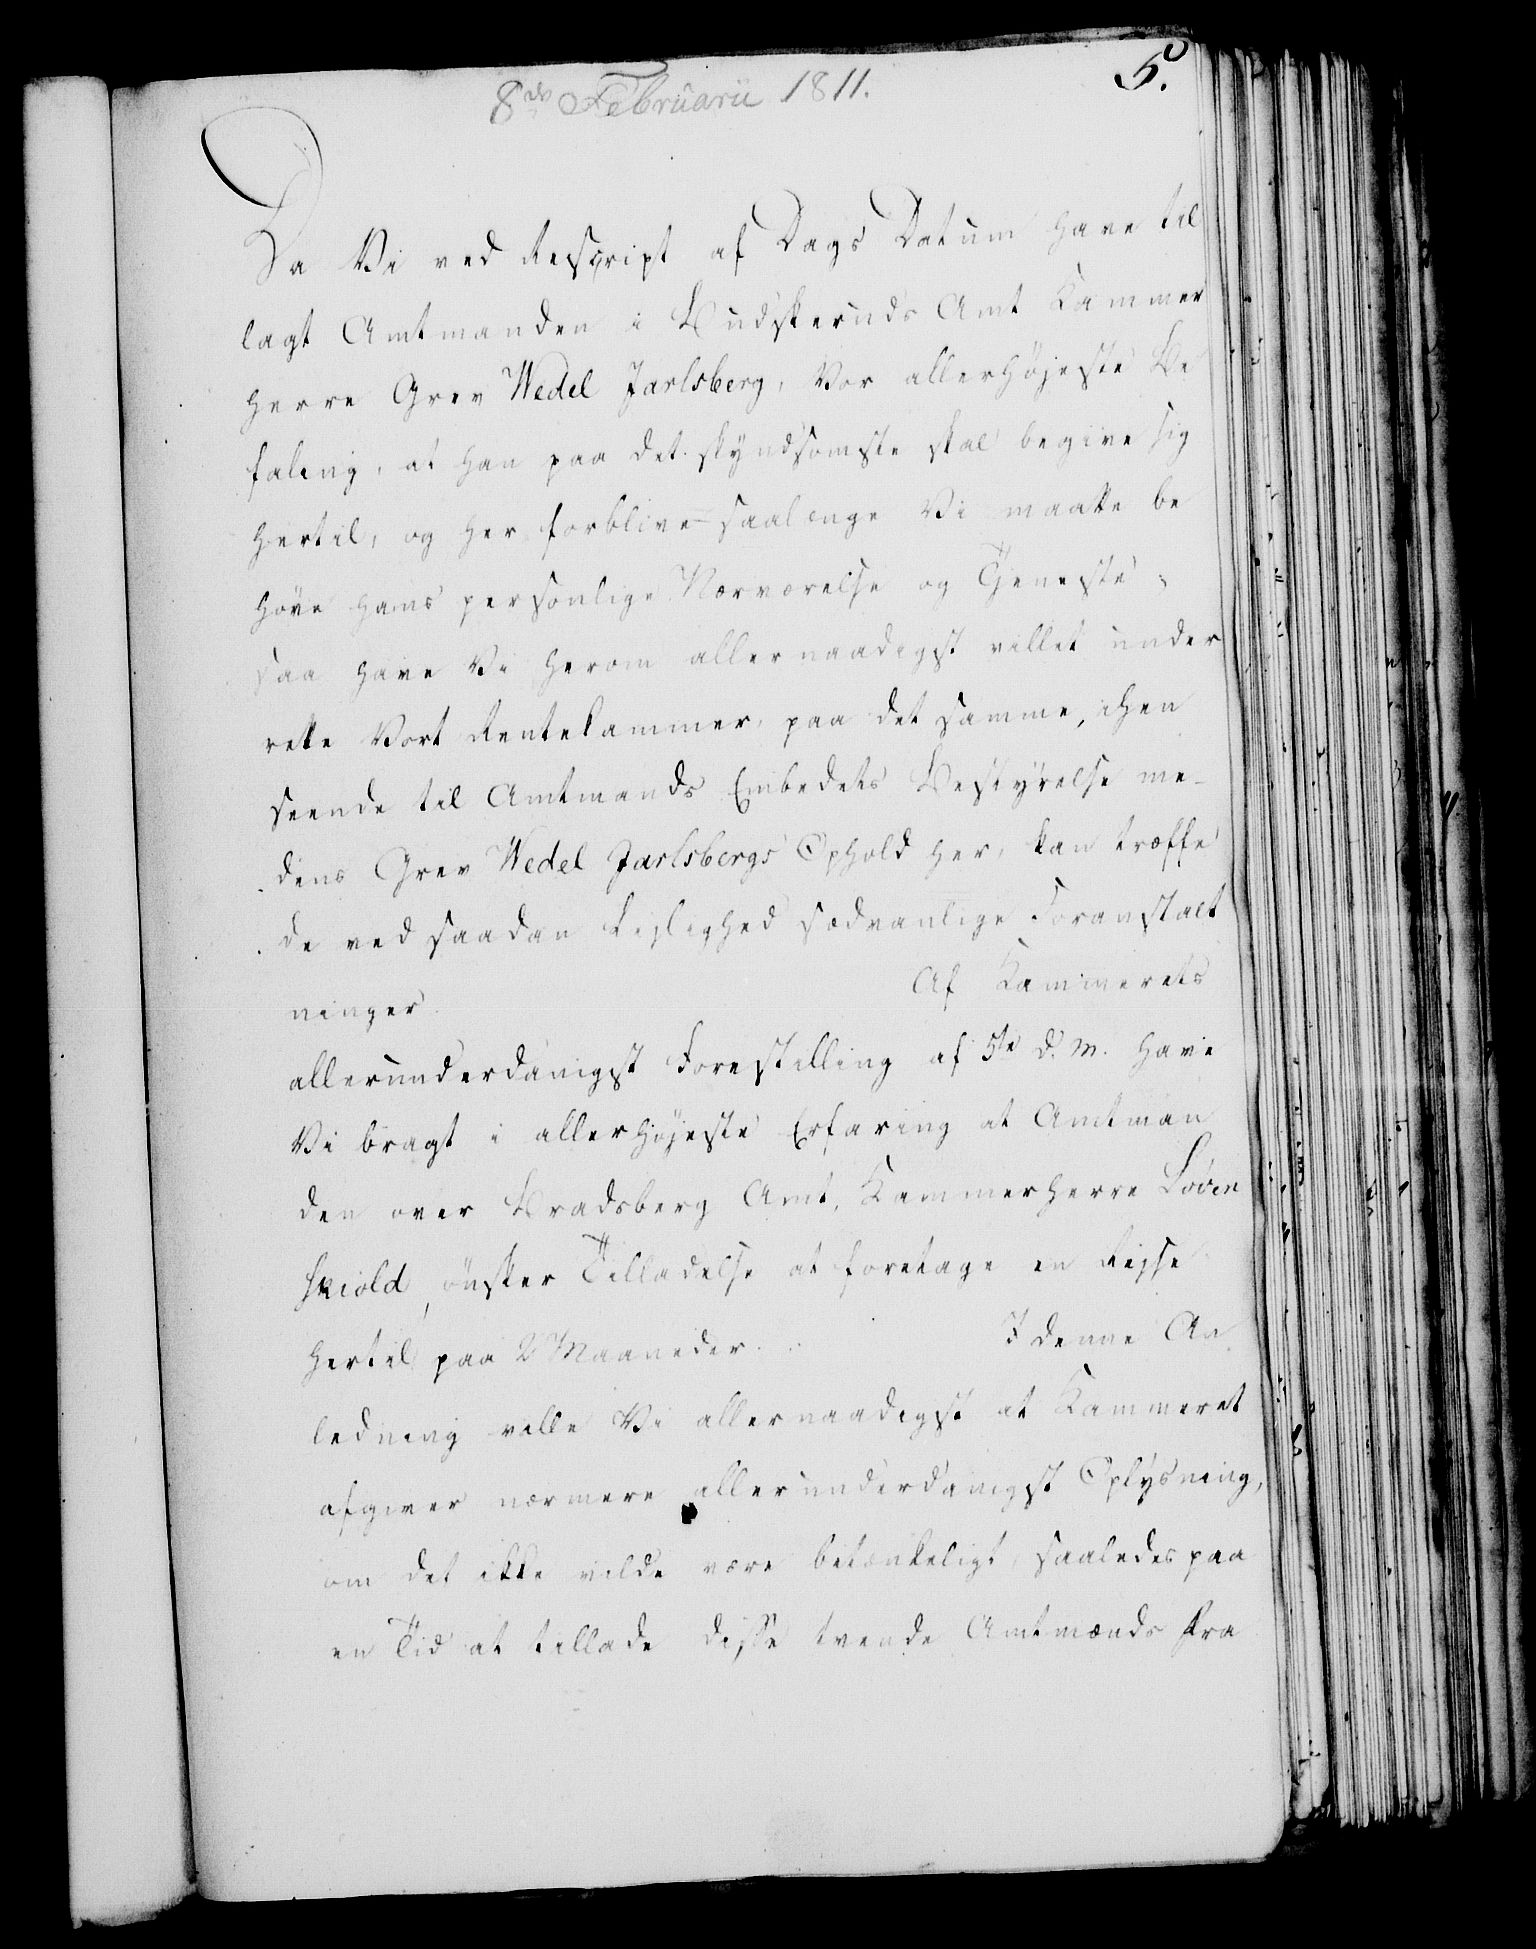 8de Februarii 1811.
5.
Da Vi ved Rescript af Dags Datum have til
lagt Amtmanden i Budskeruds Amt Kammer
herre Grev Wedel Jarlsberg, Vor allerhøjeste Be
faling, at han paa det skyndsomste skal begive sig
hertil, og her forblive saalænge Vi maatte be
høve hans personlige Nærværelse og Tjeneste;
saa have Vi herom allernaadigst villet under
rette Vort Rentekammer, paa det samme, i hen
seende til Amtmands Embedets Bestyrelse me-
dens Grev Wedel Jarlsbergs Ophold her, kan træffe
de ved saadan Lejlighed sædvanlige Foranstalt
ninger.
Af Kammerets
allerunderdanigst Forestilling af 5te d. M. have
Vi bragt i allerhøjeste Erfaring at Amtman
den over Bradsberg Amt, Kammerherre Løven
skiold, ønsker Tilladelse at foretage en Rejse
hertil paa 2 Maaneder.
I denne An
ledning ville Vi allernaadigst at Kammeret
afgiver nærmere allerunderdanigst Oplysning,
om det ikke vilde være betænkeligt, saaledes paa
en Tid at tillade disse tvende Amtmænds Fra